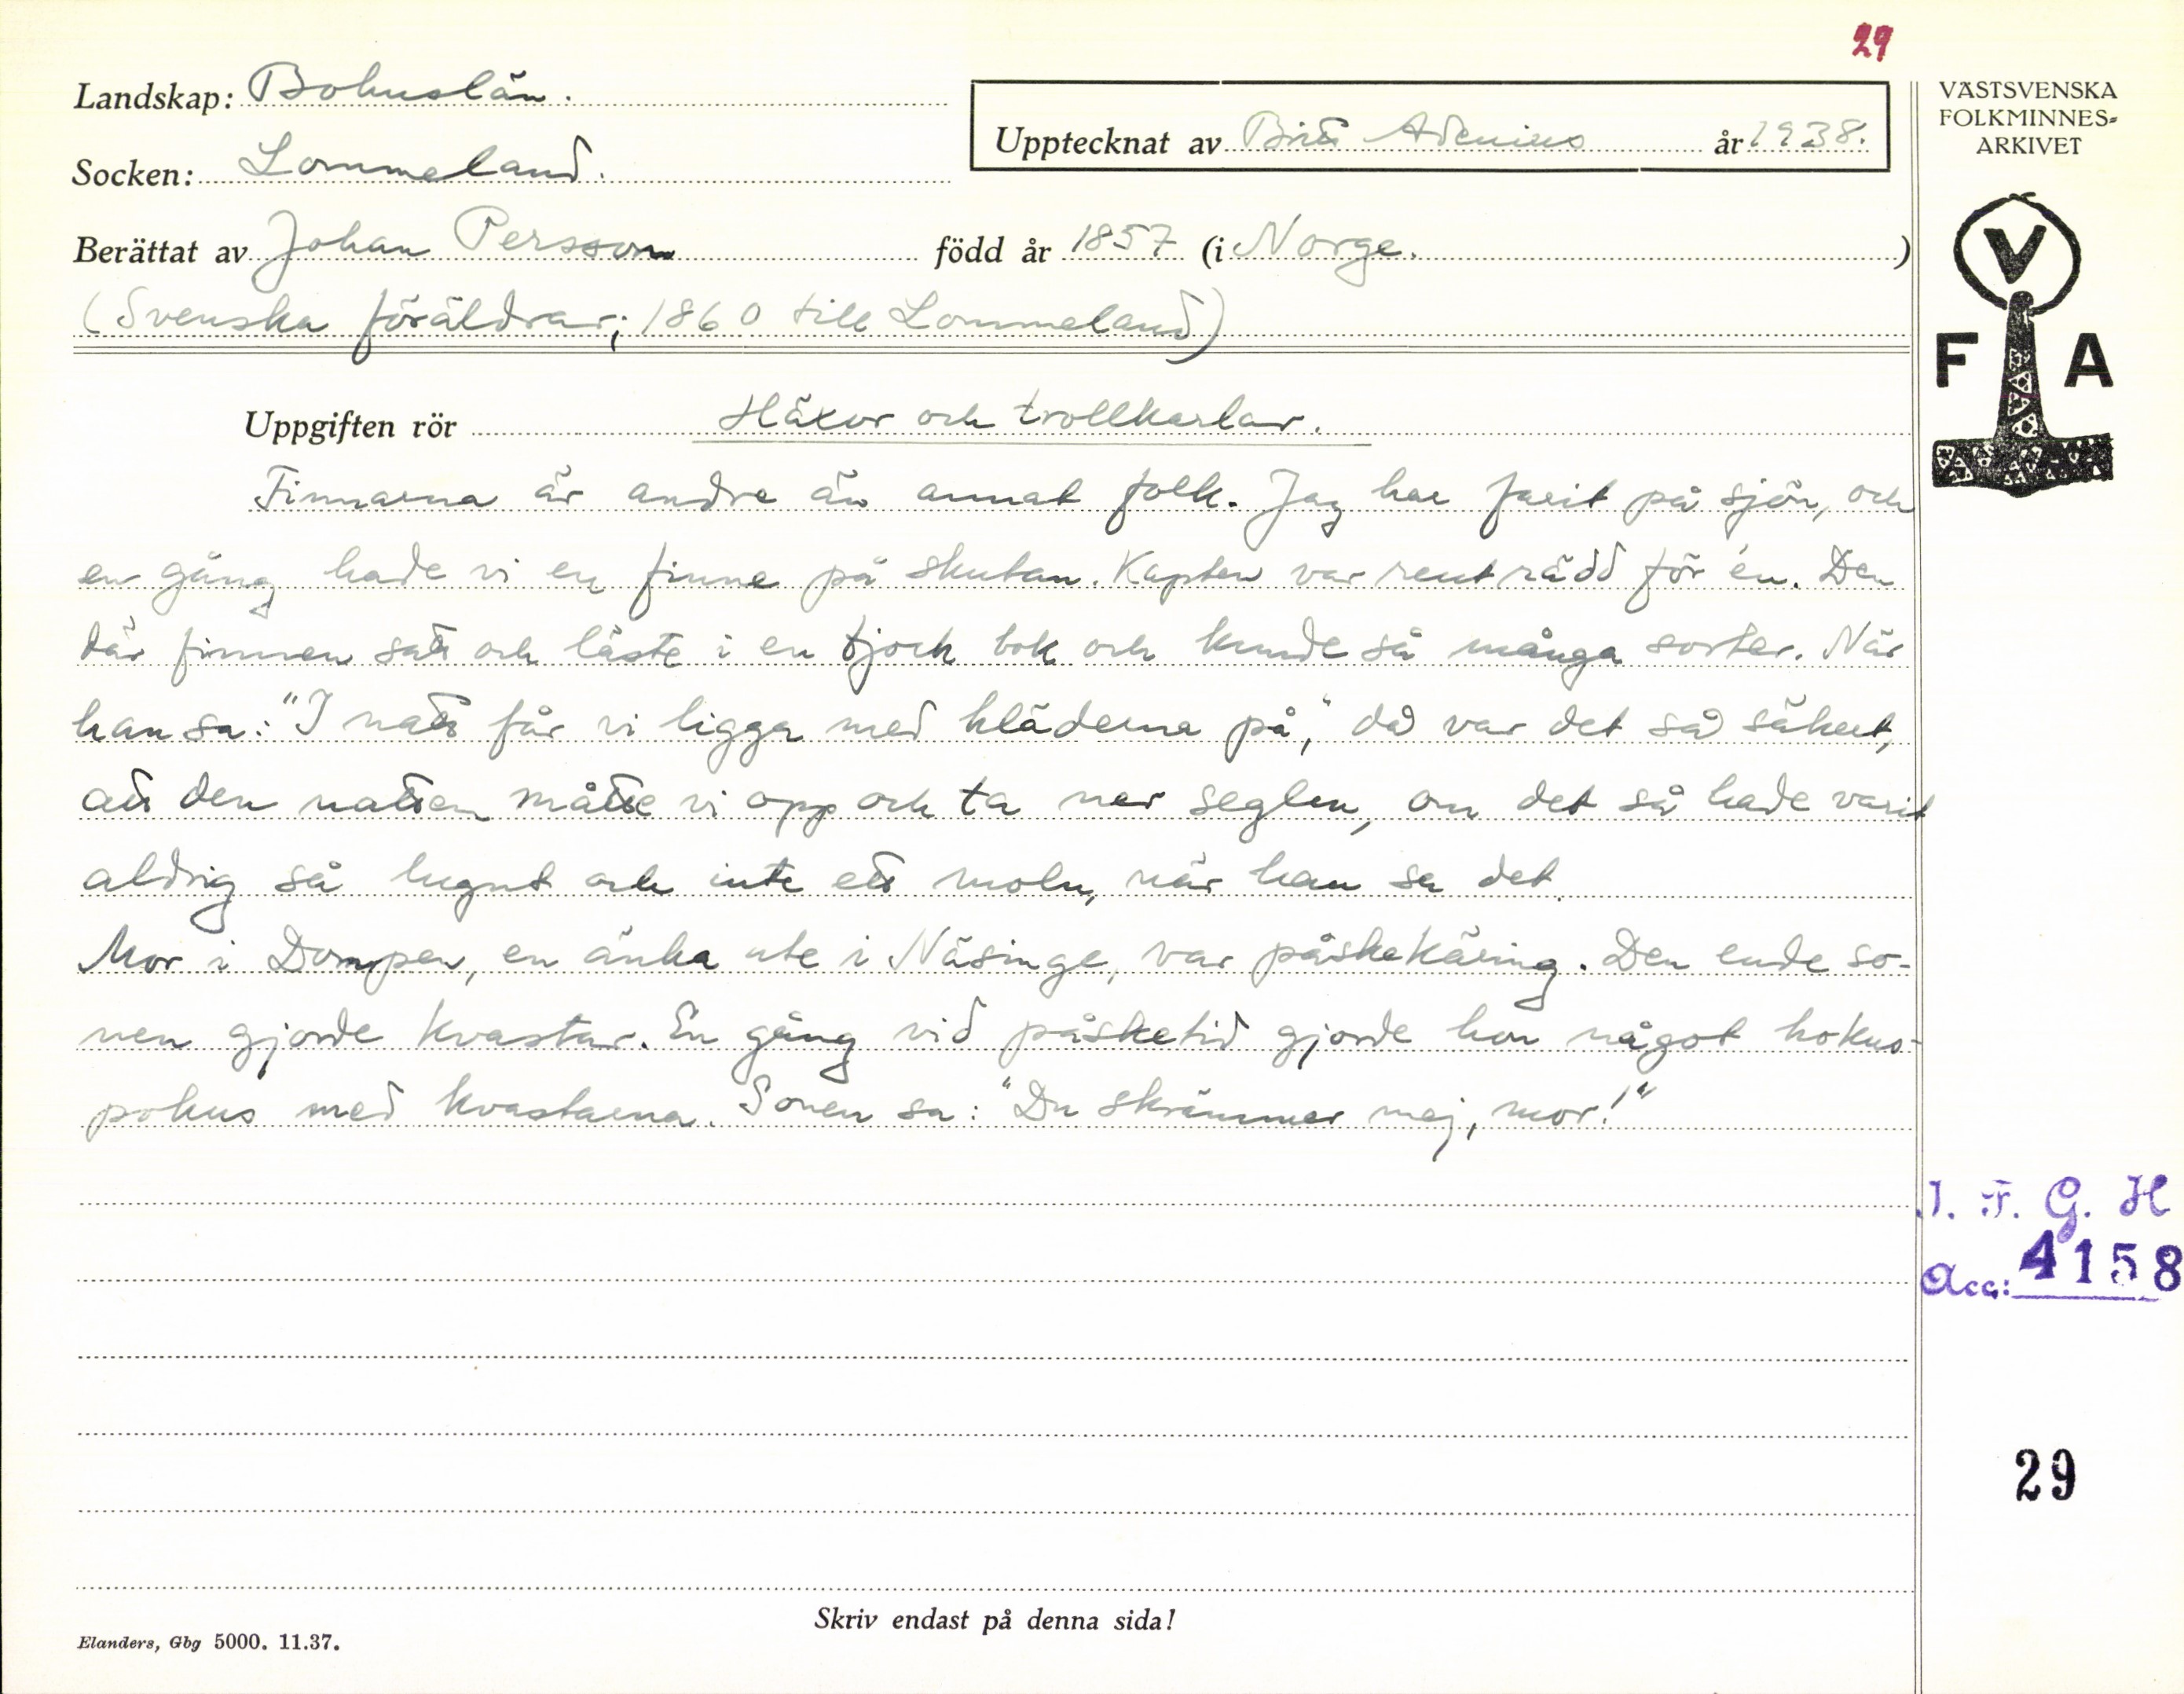 29
Landskap: Bohuslän.
Upptecknat av Britt Adenius år 1938.
VÄSTSVENSKA
FOLKMINNES-
ARKIVET
Socken: Lommeland.
Berättat av Johan Persson född år 1857 (i Norge.)
(Svenska föräldrar; 1860 till Lommeland)
V
F A
Uppgiften rör Häxor och trollkarlar.
Finnarna är andre än annat folk. Jag har farit på sjön, och
en gång hade vi en finne på skutan. Kapten var rent rädd för én. Den
där finnen satt och läste i en tjock bok och kunde så många sorter. När
han sa: "I natt får vi ligga med kläderna på," då var det så säkert,
att den natten måtte vi opp och ta ner seglen, om det så hade varit
aldrig så lugnt och inte ett moln, när han sa det.
Mor i Dompen, en änka ute i Näsinge, var påskekäring. Den ende so-
nen gjorde kvastar. En gång vid påsketid gjorde hon något hokus-
pokus med kvastarna. Sonen sa: "Du skrämmer mej, mor!"
I. F. G. H
Acc: 4158
29
Skriv endast på denna sida!
Elanders, Gbg 5000. 11.37.